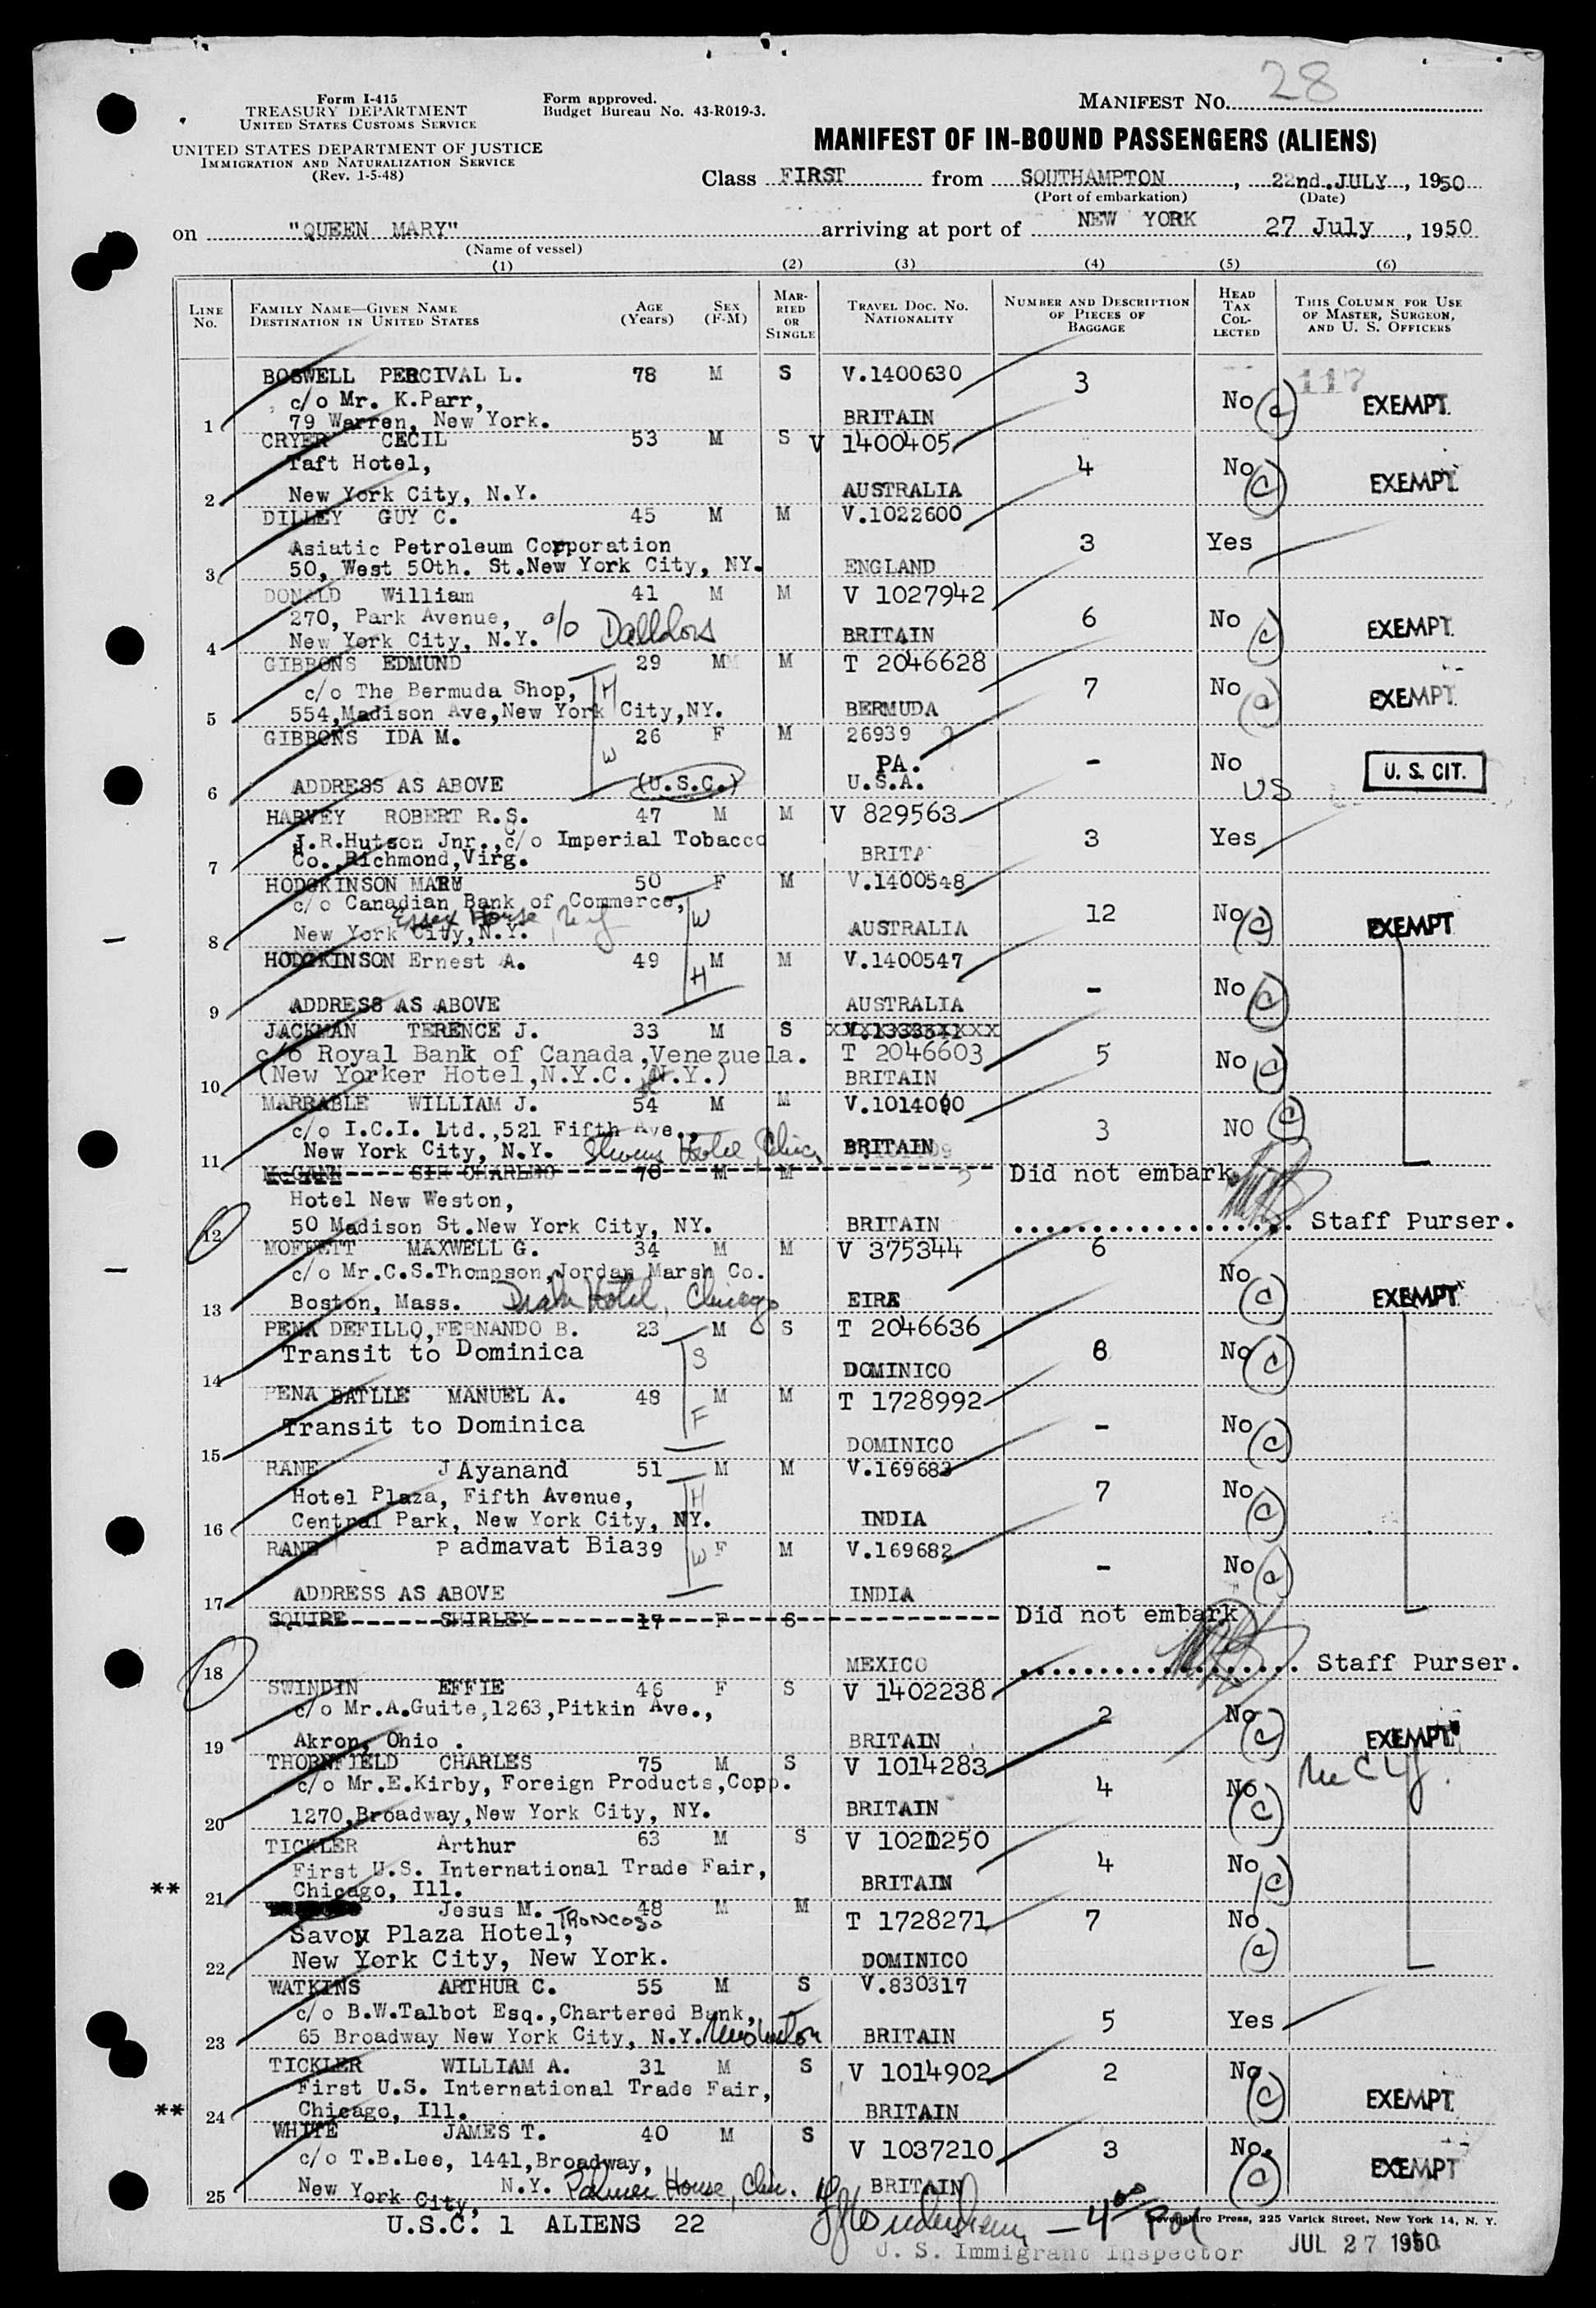 28
Form I-415
TREASURY DEPARTMENT
UNITED STATES CUSTOMS SERVICE
UNITED STATES DEPARTMENT OF JUSTICE
IMMIGRATION AND NATURALIZATION SERVICE
(Rev. 1-5-48)
Form approved.
Budget Bureau No. 43-R019-3.
MANIFEST NO.
MANIFEST OF IN-BOUND PASSENGERS (ALIENS)
Class FIRST from SOUTHAMPTON, 22nd.JULY, 1950
(Port of embarkation) (Date)
on "QUEEN MARY" arriving at port of NEW YORK 27 July, 1950
(Name of vessel)
(1) (2) (3) (4) (5) (6)
LINE NO. FAMILY NAME—GIVEN NAME DESTINATION IN UNITED STATES AGE (Years) SEX (F-M) MARRIED OR SINGLE TRAVEL DOC. NO. NATIONALITY NUMBER AND DESCRIPTION OF PIECES OF BAGGAGE HEAD TAX COLLECTED THIS COLUMN FOR USE OF MASTER, SURGEON, AND U. S. OFFICERS
117
BOSWELL PERCIVAL L. 78 M S V.1400630 3
c/o Mr. K.Parr, No (c) EXEMPT
1 79 Warren, New York. BRITAIN
CRYER CECIL 53 M S V 1400405
Taft Hotel, 4 No (c) EXEMPT
2 New York City, N.Y. AUSTRALIA
DILLEY GUY C. 45 M M V.1022600
Asiatic Petroleum Corporation 3 Yes
3 50, West 50th. St.New York City, NY. ENGLAND
DONALD William 41 M M V 1027942
270, Park Avenue, 6 No (c) EXEMPT
4 New York City, N.Y. c/o BRITAIN
GIBBONS EDMUND 29 M M T 2046628
c/o The Bermuda Shop, H 7 No (c) EXEMPT
5 554,Madison Ave,New York City,NY. BERMUDA
GIBBONS IDA M. 26 F M 26939
W PA. - No US U. S. CIT.
6 ADDRESS AS ABOVE (U.S.C.) U.S.A.
HARVEY ROBERT R.S. 47 M M V 829563
J.R.Hutson Jnr.,c/o Imperial Tobacco 3 Yes
7 Co.,Richmond,Virg. BRITA
HODGKINSON MARY 50 F M V.1400548
c/o Canadian Bank of Commerce, W 12 No (c) EXEMPT
Essex House, N.Y.
8 New York City,N.Y. AUSTRALIA
HODGKINSON Ernest A. 49 M M V.1400547
H - No (c)
9 ADDRESS AS ABOVE AUSTRALIA
JACKMAN TERENCE J. 33 M S
c/o Royal Bank of Canada,Venezuela. T 2046603 5 No (c)
10 (New Yorker Hotel,N.Y.C.,N.Y.) BRITAIN
MARRABLE WILLIAM J. 54 M M V.1014090
c/o I.C.I. Ltd.,521 Fifth Ave., 3 NO (c)
11 New York City, N.Y. Stevens Hotel, Chic. BRITAIN
McCANN SIR CHARLES 70 M M 3 Did not embark
Hotel New Weston,
12 50 Madison St.New York City, NY. BRITAIN Staff Purser.
MOFFETT MAXWELL G. 34 M M V 375344 6
c/o Mr.C.S.Thompson,Jordan Marsh Co. No (c) EXEMPT
13 Boston, Mass. Drake Hotel, Chicago EIRE
PENA DEFILLO,FERNANDO B. 23 M S T 2046636
Transit to Dominica S 8 No (c)
14 DOMINICO
PENA BATLLE MANUEL A. 48 M M T 1728992
Transit to Dominica F - No (c)
15 DOMINICO
RANE JAyanand 51 M M V.169683
Hotel Plaza, Fifth Avenue, H 7 No (c)
16 Central Park, New York City, NY. INDIA
RANE Padmavat Bia 39 F M V.169682
W - No (c)
17 ADDRESS AS ABOVE INDIA
SQUIRE SHIRLEY 17 F S Did not embark
18 MEXICO Staff Purser.
SWINDIN EFFIE 46 F S V 1402238
c/o Mr.A.Guite,1263,Pitkin Ave., 2 No (c) EXEMPT
19 Akron, Ohio. BRITAIN
THORNFIELD CHARLES 75 M S V 1014283
c/o Mr.E.Kirby, Foreign Products,Copp. 4 No (c)
20 1270,Broadway,New York City, NY. BRITAIN
TICKLER Arthur 63 M S V 1021250
First U.S. International Trade Fair, 4 No (c)
** 21 Chicago, Ill. BRITAIN
Jesus M. TRONCOSO 48 M M
Savoy Plaza Hotel, T 1728271 7 No (c)
22 New York City, New York. DOMINICO
WATKINS ARTHUR C. 55 M S V.830317
c/o B.W.Talbot Esq.,Chartered Bank, 5 Yes
23 65 Broadway New York City, N.Y. BRITAIN
TICKLER WILLIAM A. 31 M S V 1014902 2 No (c)
First U.S. International Trade Fair, EXEMPT
** 24 Chicago, Ill. BRITAIN
WHITE JAMES T. 40 M S
c/o T.B.Lee, 1441,Broadway, V 1037210 3 No. (c) EXEMPT
25 New York City, N.Y. Palmer House, Chic. BRITAIN
U.S.C. 1 ALIENS 22
Devonshire Press, 225 Varick Street, New York 14, N. Y.
U. S. Immigrant Inspector JUL 27 1950